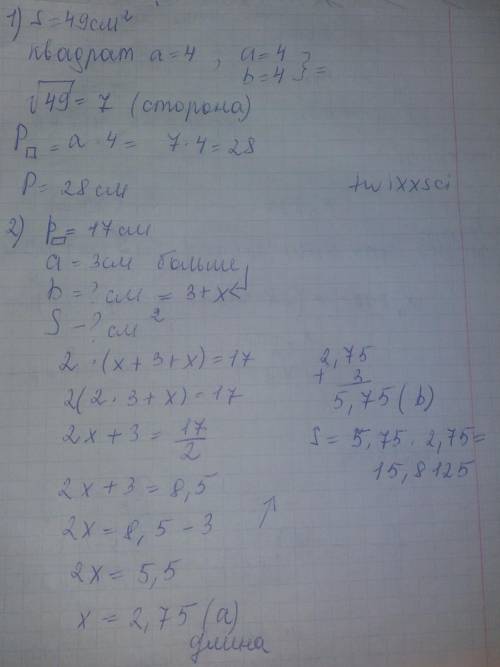 1) S = 49 см²
квадрат a = 4 , a = 4
b = 4 } =
√49 = 7 (сторона)
P□ = a · 4 = 7 · 4 = 28
P = 28 см
twixxsci
2) P▭ = 17 см
a = 3 см больше
b = ? см = 3 + x
S - ? см²
2 · (x + 3 + x) = 17
2(2 · 3 + x) = 17
2x + 3 = 17/2
2x + 3 = 8,5
2x = 8,5 - 3
2x = 5,5
x = 2,75 (a)
длина
2,75
+ 3
5,75 (b)
S = 5,75 · 2,75 =
15,8125